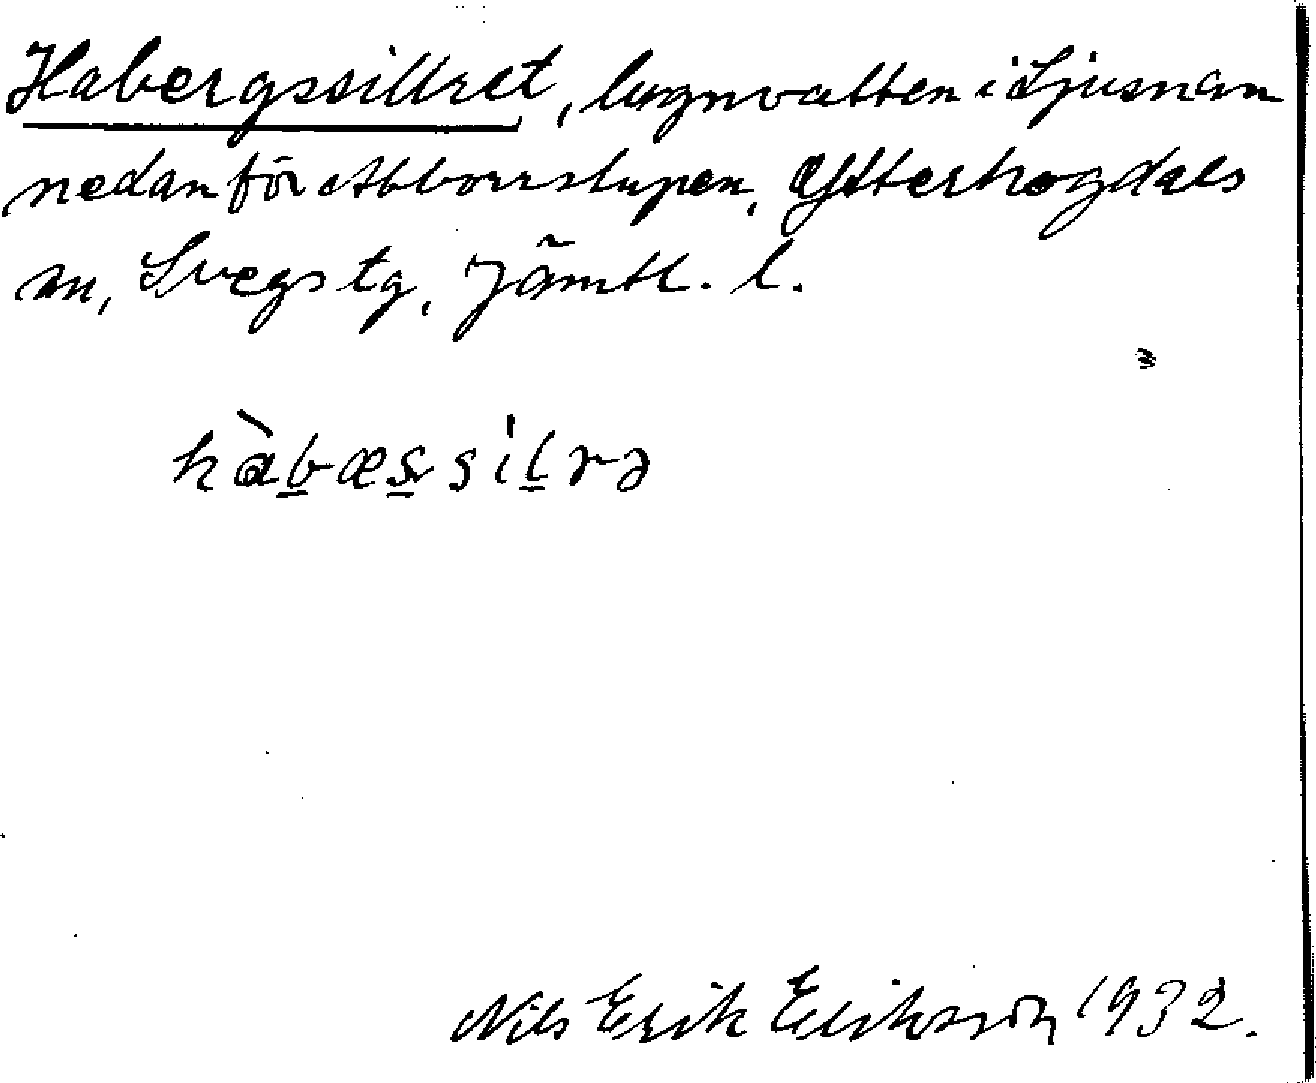 Habergssillret, lugnvatten i Ljusnan
nedanför Abborrstupen, Ytterhogdals
sn, Svegs tg, Jämtl. l.
hàbæssilrə
Nils Erik Eriksson 1932.